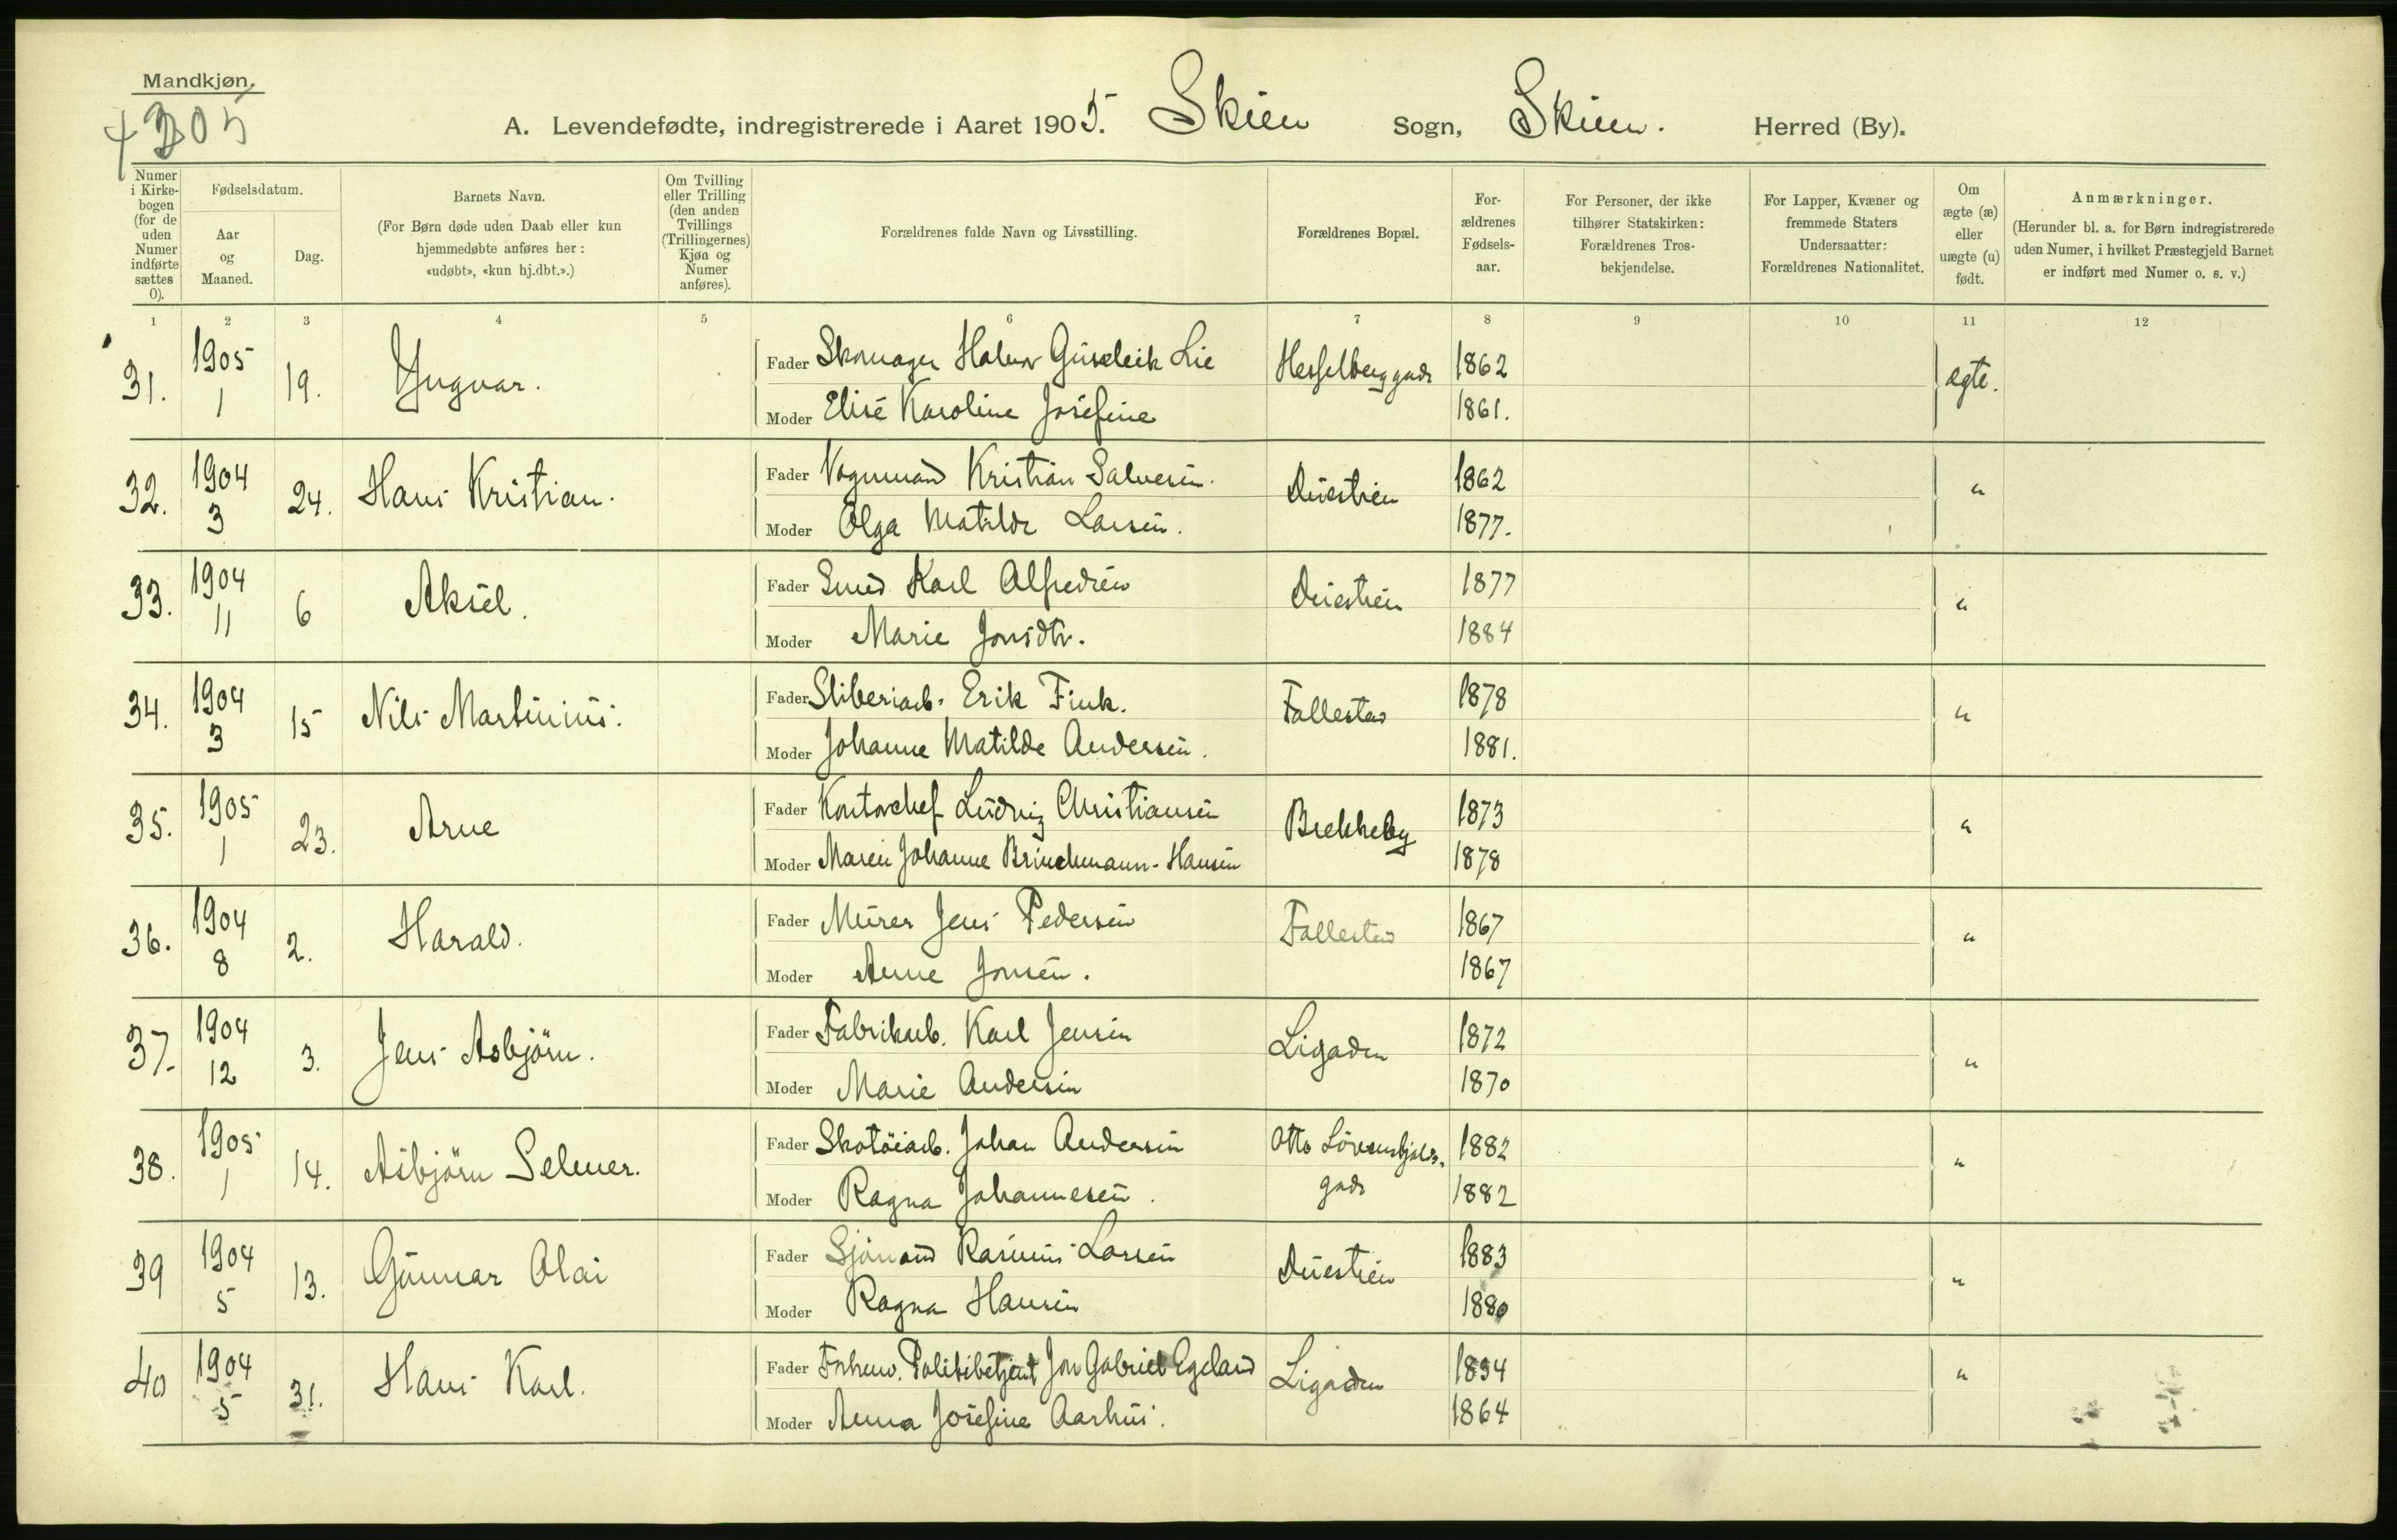 Mandkjøn.
4305
A. Levendefødte, indregistrerede i Aaret 1905. Skien Sogn, Skien. Herred (By).
Numer i Kirkebogen (for de uden Numer indførte sættes 0).
Fødselsdatum.
Aar og Maaned.
Dag.
Barnets Navn.
(For Børn døde uden Daab eller kun hjemmedøbte anføres her: «udøbt», «kun hj.dbt.».)
Om Tvilling eller Trilling (den anden Tvillings (Trillingernes) Kjøn og Numer anføres).
Forældrenes fulde Navn og Livsstilling.
Forældrenes Bopæl.
Forældrenes Fødselsaar.
For Personer, der ikke tilhører Statskirken: Forældrenes Trosbekjendelse.
For Lapper, Kvæner og fremmede Staters Undersaatter: Forældrenes Nationalitet.
Om ægte (æ) eller uægte (u) født.
Anmærkninger.
(Herunder bl. a. for Børn indregistrerede uden Numer, i hvilket Præstegjeld Barnet er indført med Numer o. s. v.)
1 2 3 4 5 6 7 8 9 10 11 12
31. 1905 1 19. Yngvar. Fader Skomager Halvor Gunleik Lie Hesselberggade 1862 ægte.
Moder Elise Karoline Josefine 1861.
32. 1904 3 24. Hans Kristian. Fader Vognmand Kristian Salvesen. Duestien 1862 "
Moder Olga Matilde Larsen. 1877.
33. 1904 11 6 Aksel. Fader Smed Karl Alfredsen Duestien 1877 "
Moder Marie Jonsdtr. 1884
34. 1904 3 15 Nils Martinius. Fader Sliberiarb. Erik Fink. Follestad 1878 "
Moder Johanne Matilde Andersen. 1881.
35. 1905 1 23. Arne Fader Kontorchef Ludvig Christiansen Brekkeby 1873 "
Moder Maren Johanne Brinchmann-Hansen 1878
36. 1904 8 2. Harald. Fader Murer Jens Pedersen Follestad 1867 "
Moder Anne Jonsen. 1867
37. 1904 12 3. Jens Asbjørn. Fader Fabrikarb. Karl Jensen Ligaden 1872 "
Moder Marie Andersen 1870
38. 1905 1 14. Asbjørn Selmer. Fader Skotøiarb. Johan Andersen Otto Løvenskjolds. 1882 "
Moder Ragna Johannesen. gade 1882
39 1904 5 13. Gunnar Olai Fader Sjømand Rasmus Larsen Duestien 1883 "
Moder Ragna Hansen 1880
40 1904 5 31. Hans Karl. Fader Forhenv. Politibetjent Jon Gabriel Egeland Ligaden 1834 "
Moder Anna Josefine Aarhus. 1864